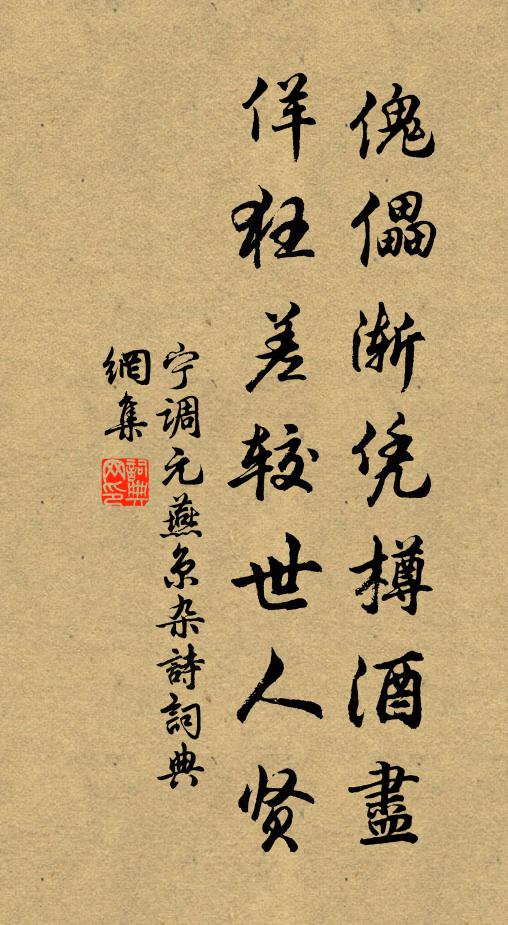 傀儡渐凭樽酒盡
佯狂差较世人贤
宁调元燕京杂詩詞典
網集
詞典
网印